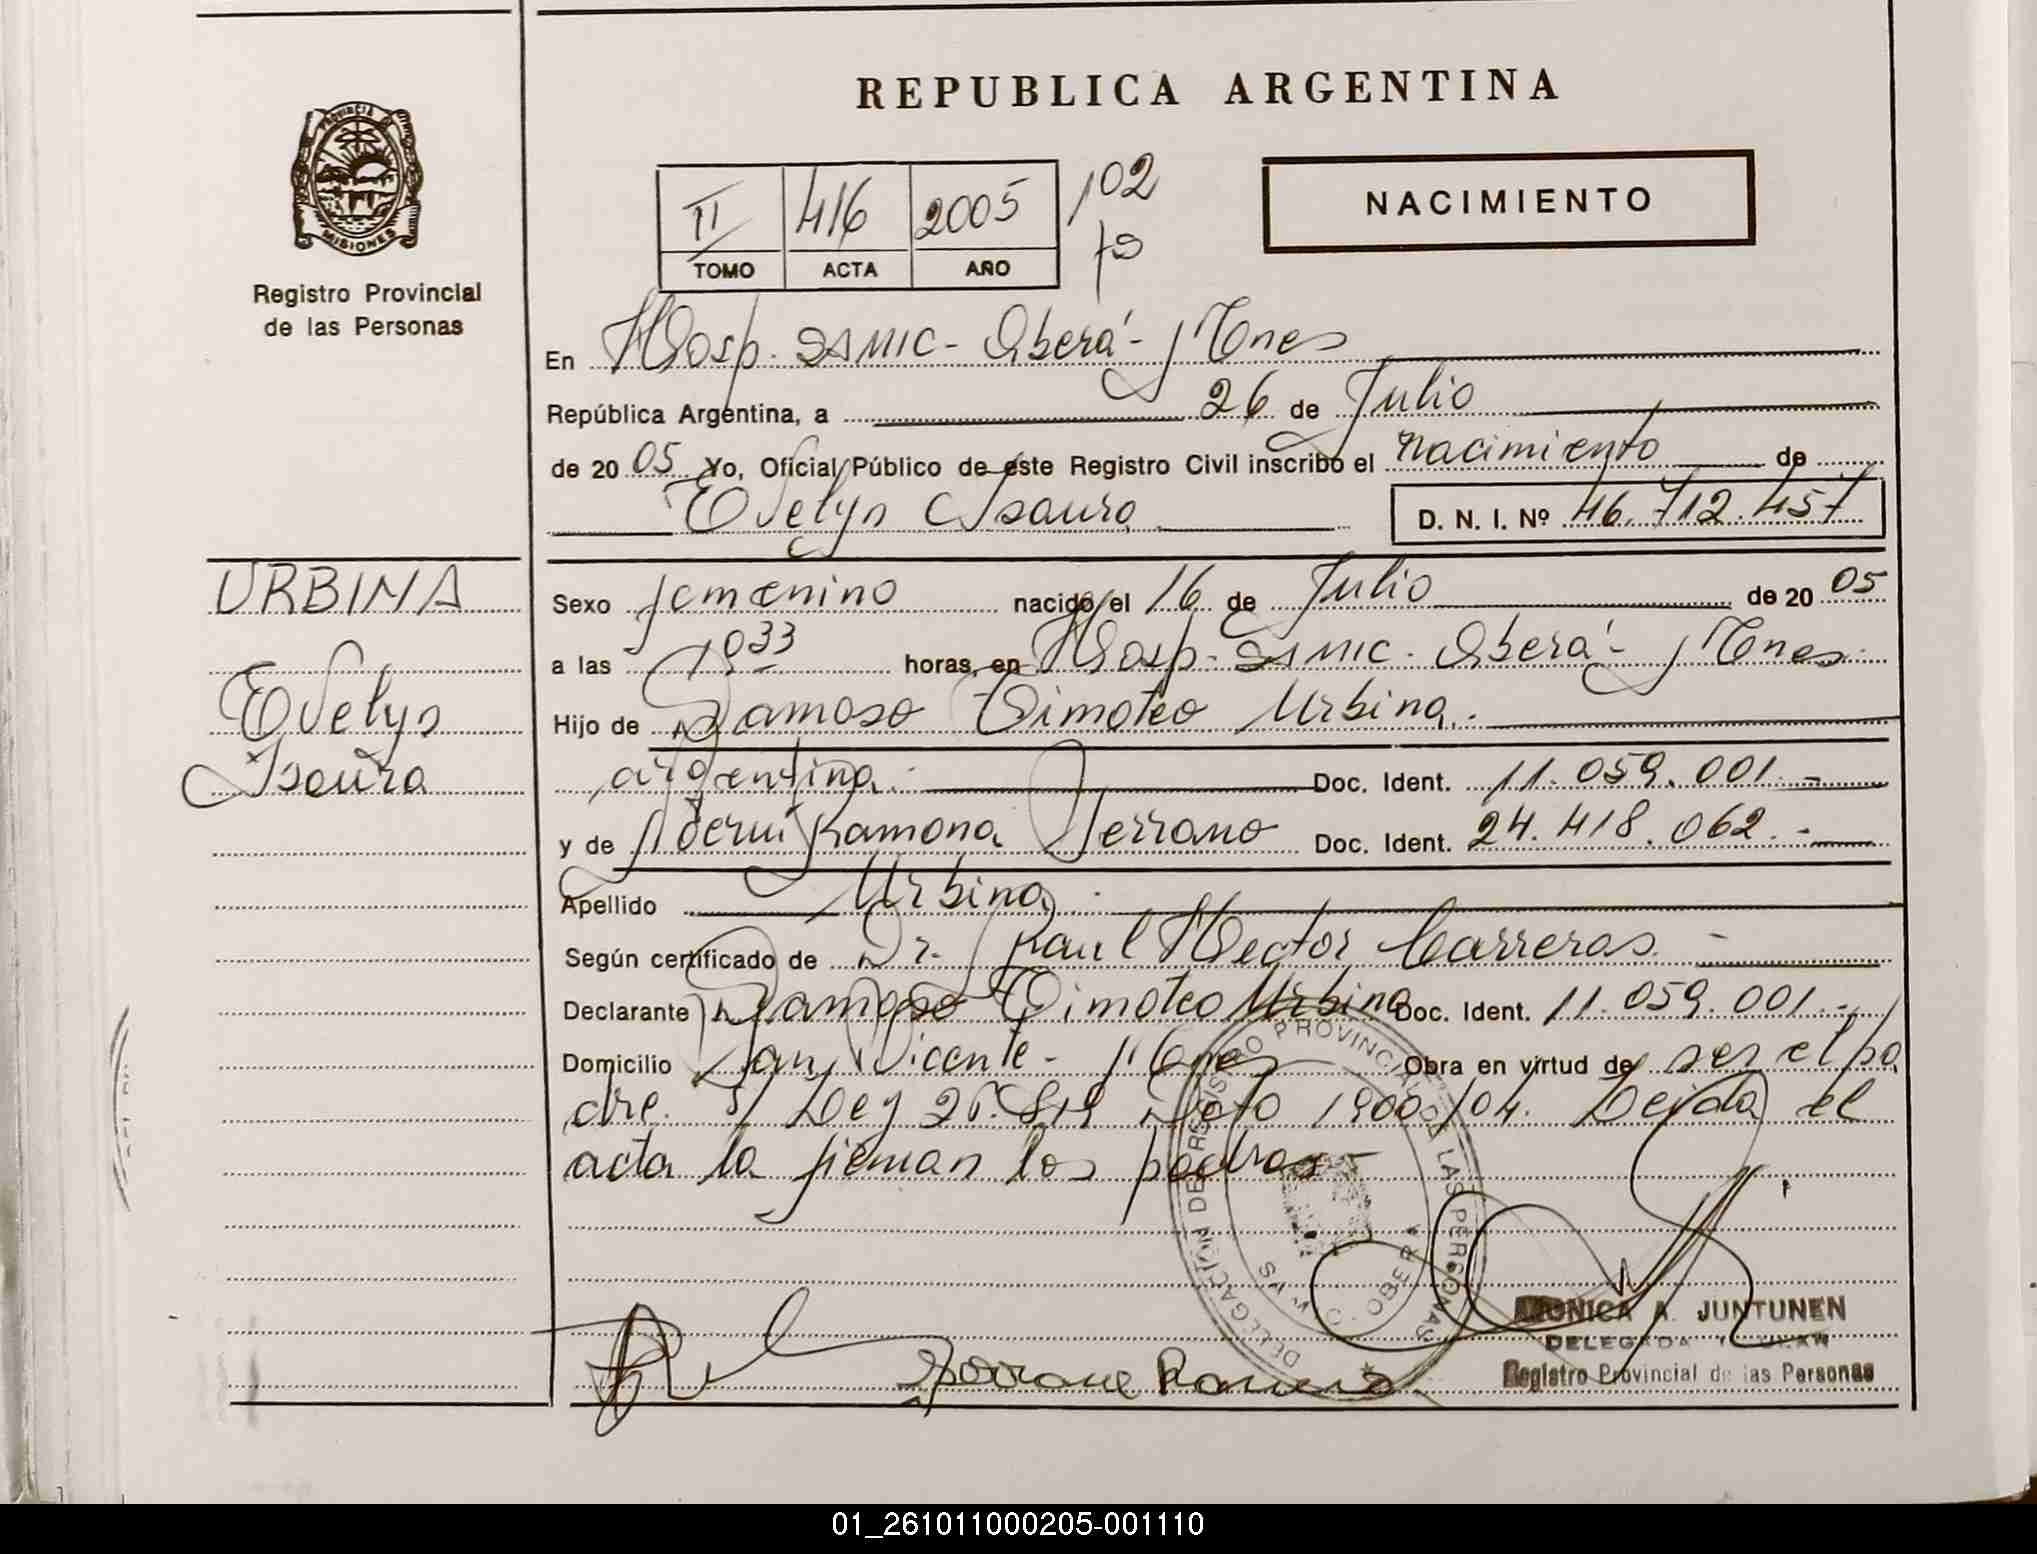 REPUBLICA ARGENTINA
PROVINCIA
MISIONES
Registro Provincial
de las Personas
II 416 2005 102
TOMO ACTA AÑO
NACIMIENTO
En Hosp. SAMIC - Oberá - Mnes
República Argentina, a 26 de Julio
de 20 05 Yo, Oficial Público de este Registro Civil inscribo el nacimiento de
Evelyn Isaura D. N. I. Nº 46.712.457
URBINA
Evelyn
Isaura
Sexo femenino nacido el 16 de Julio de 20 05
a las 1033 horas, en Hosp. SAMIC - Oberá - Mnes
Hijo de Damaso Timoteo Urbina.
argentina. Doc. Ident. 11.059.001.-
y de Ramona Serrano Doc. Ident. 24.418.062.-
Apellido Urbina.
Según certificado de Dr. Raul Hector Carreras.-
Declarante Damaso Timoteo Urbina Doc. Ident. 11.059.001.-
Domicilio San Vicente - Mnes Obra en virtud de ser el pa
dre. s/ Ley 26.819 Dcto 1900/04. Leída el
acta la firman los padres.-
DELEGACIÓN DE REGISTRO PROVINCIAL DE LAS PERSONAS
Serrano Ramona
MONICA A. JUNTUNEN
DELEGADA TITULAR
Registro Provincial de las Personas
01_261011000205-001110